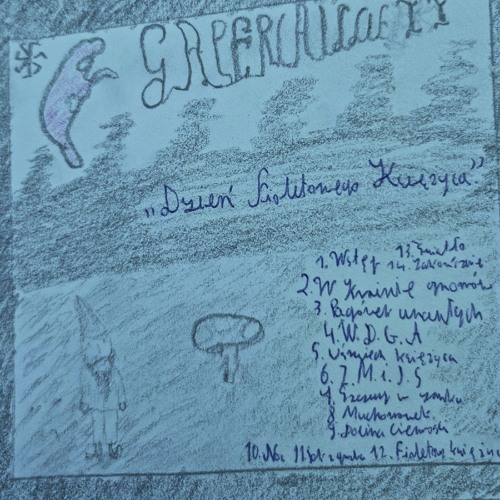 „Dzień Fioletowego Księżyca”
1. Wstęp 13. Światło
14. Zakończenie
2. W krainie gnomów
3. Pagórek umarłych
4. W.D.G.A
5. Uśmiech księżyca
6. Z.M.i.J.S
7. w zamku
8. Muchomorek
9. Dolina Ciemności
10. Noc 11. 12. Fioletowy księżyc